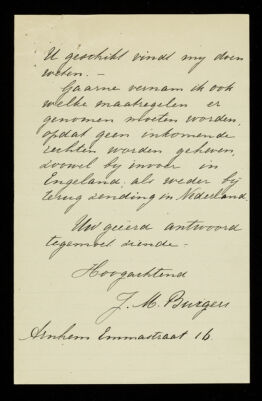 U geschikt vindt my doen
weten. —
Gaarne vernam ik ook
welke maatregelen er
genomen moeten worden,
opdat geen inkomende
rechten worden geheven,
zoowel by invoer in
Engeland, als weder by
terug zending in Nederland.
Uw geëerd antwoord
tegemoet ziende -
Hoogachtend
J. M. Burgers
Arnhem Emmastraat 16.